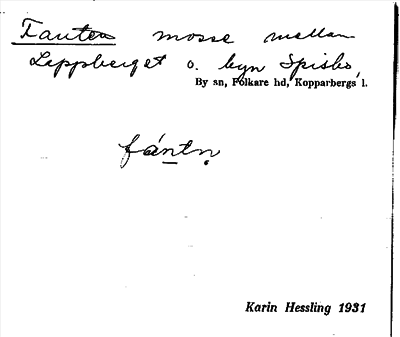 Fanten mosse mellan
Leppberget o. byn Spisbo,
By sn, Folkare hd, Kopparbergs l.
fántn̥
Karin Hessling 1931